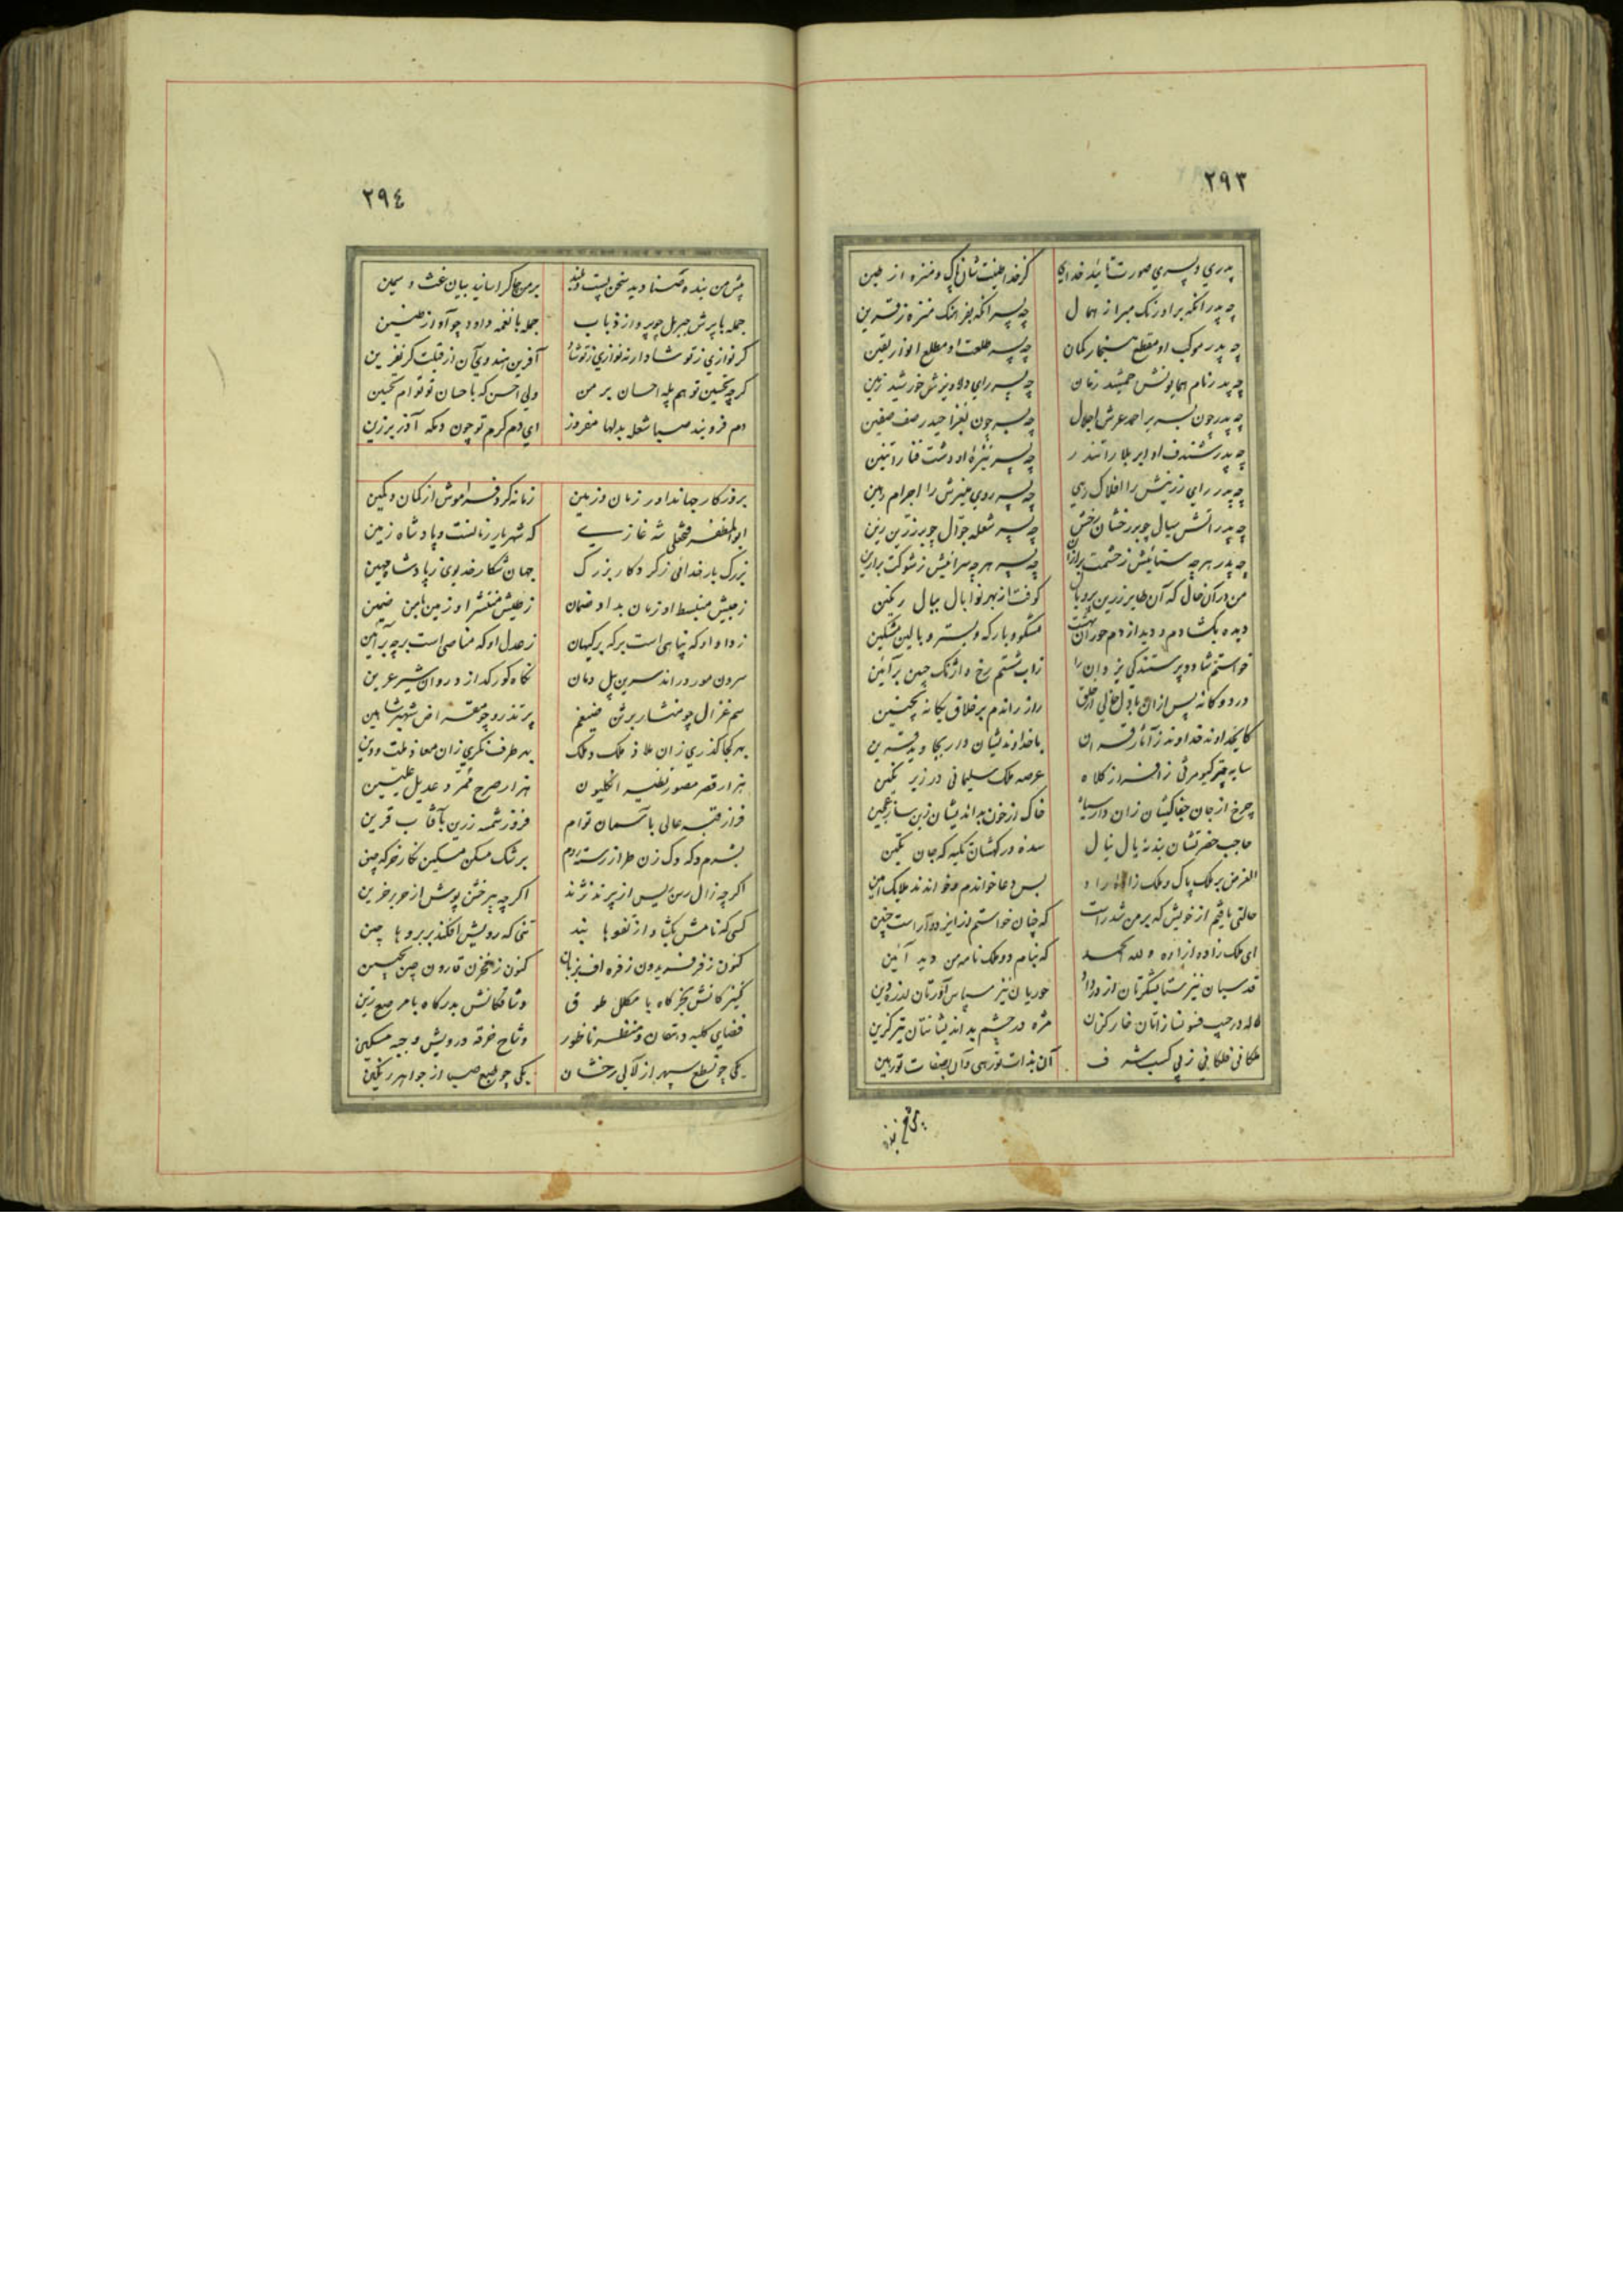 ۲۹۳
پدری و پسری صورت تائید خدای کز خدا طینت شان پاک و منزه از طین
چه پدر آنکه بر اورنگ مبرا ز همال چه پسر آنکه بفرهنگ منزه ز قرین
چه پدر موکب او مقطع کمان چه پسر طلعت او مطلع انوار یقین
چه پدر نام همایونش جمشید زمان چه پسر رای خورشید زمین
چه پدر چون بسریر احمد عرش اجلال چه پسر چون بغزا حیدر صف صفین
چه پدر او ابر بلا را تندر چه پسر نیزهٔ او دشت فنا را تنین
چه پدر رای زرینش را افلاک رهی چه پسر روی منیرش را اجرام رهین
چه پدر آتش سیال چو بر رخشان رخش چه پسر شعله جوال چو بر زرین زین
چه پدر هر چه ستائیش ز حشمت برازان چه پسر هر چه سرائیش ز شوکت برازین
من در آن حال که آن طایر زرین پر و بال کوفت از بهر نوا بال ببال رنگین
دیده بگشادم و دید از دم حوران بهشت مشکو و بارگه و بستر و بالین مشکین
خواستم شاد و پرستندگی یزدان را ز آب شستم رخ و اژنگ چین بر آئین
در دوگانه پس از آن با دل خالی از خلق راز راندم بر خلاق یگانه بچنین
کایخداوند خداوند ز آثار قران با خداوندیشان دار بجاوید قرین
سایه چتر کیومرثی ز افراز کلاه عرصه ملک سلیمانی در زیر نگین
چرخ از جان جفاکیشان زان دار سیاه خاک از خون بداندیشان زین ساز عجین
حاجب حضرتشان بندهٔ یال نیال سدهٔ درگهشان تکیه گه جان تکین
الغرض بر ملک پاک و ملک زاده راد بس دعا خواندم و خواندند ملایک آمین
حالتی یافتم از خویش که بر من شد راست که چنان خواستم از ایزد و آراست چنین
ای ملک زاده آزاده و لله الحمد که بنام دو ملک نامه من دید آئین
قدسیان نیز ستایشگرتان از در داد حوریان نیز سپاس آورتان از ره دین
لاله در جیب خار کزان مژه در چشم بداندیشانتان تیر گزین
ملکانی فلکانی ز پی کسب شرف آن بذات تو رهی و آن بصفات تو رهین
۲۹۴
پیش من بنده سخن پست و بلند بر من چاکر اسانید بیان غث و سمین
جمله با پرش جبریل چو پرواز ذباب جمله با نغمه داود چو آواز طنین
گر نوازی ز تو شاد ار ننوازی ز تو شاد آفرین هندوی آن از قبلت گر نفرین
گر چه تحسین تو هم پله احسان بر من ولی احسن که باحسان تو توام تحسین
دم فرو بند صبا شعله بدلها مفروز ای دم گرم تو چون دمگه آذر برزین
بروزگار جهاندار زمان و زمین زمانه کرد فراموش از گمان و یقین
ابوالمظفر فتحعلی شه غازی که شهریار زمانست و پادشاه زمین
بزرگ بار خدائی ز کردگار بزرگ جهان شکار خدیوی ز پادشاه چین
ز جیبش منبسط او زمان بداد ضمان ز طیش منتشر او زمین بامن ضمین
ز داد او که پناهی است بر که بر کیهان ز عدل او که مناصی است بر چه بر آیین
سرون مور دراند سرین پیل دمان نگاه گور گدازد روان شیر عرین
سم غزال چو منشار برثن ضیغم پر تذرو چو مقراض شهپر شاهین
بهر کجا گذری زان ملاذ ملک و ملک بهر طرف نگری زان معاذ ملت و دین
هزار قصر مصور نظیر انگلیون هزار صرح ممرد عدیل علیین
فراز قبه عالی باسمان توام فروز شمسه زرین بآفتاب قرین
بشرم دکه دک زن طراز رسته روم برشک مسکن مسکین نگار خرگه چین
اگر چه زال رسن ریس از پرند نژند اگر چه پیر خشن پوش از حریر حزین
کسی که نامش یکتا و از تفو ها بند تنی که رویش افکند بر بروها چین
کنون ز فر فریدون ز فره افریزبان کنون ز مخزن قارون
کنیزکانش بخرگاه با مکلل طوق وشاقکانش بدرگاه با مرصع زین
فضای کلبه دهقان و منظر ناطور وشاح خرقه درویش و جبه مسکین
یکی چو نطع سپهر از لآلی رخشان یکی چو طبع صبا از جواهر رنگین